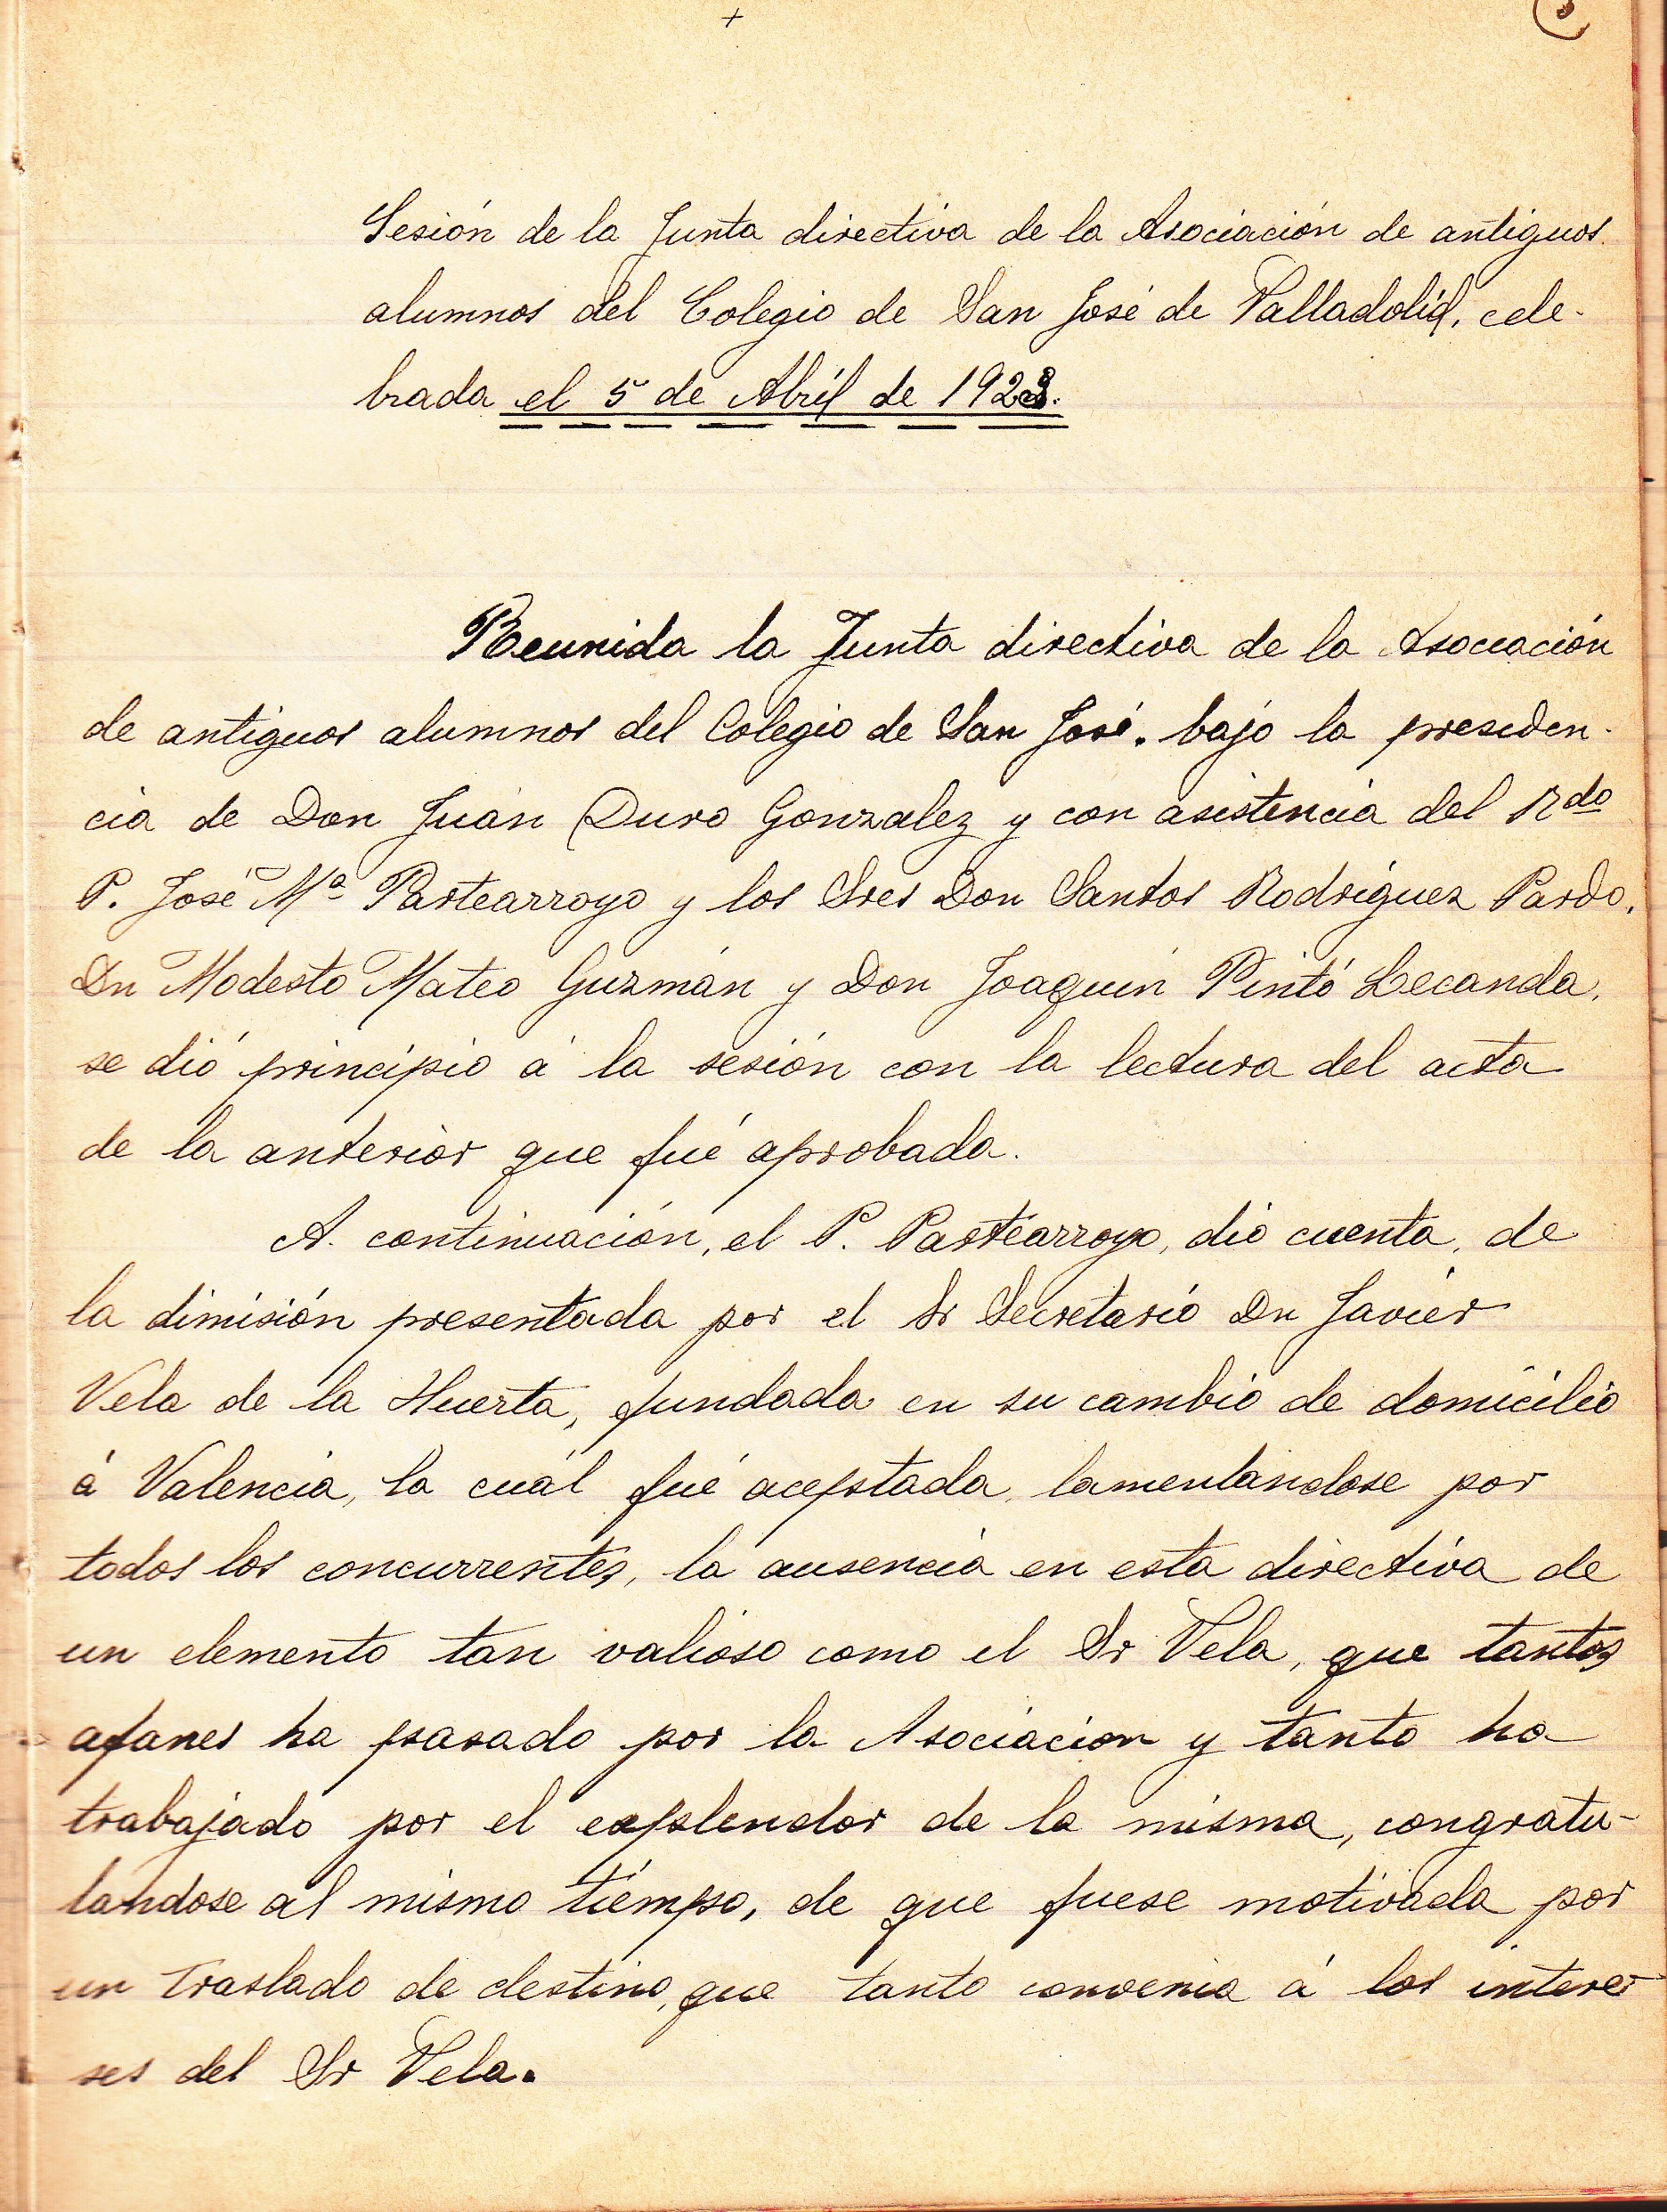 +
Sesión de la Junta directiva de la Asociación de antiguos
alumnos del Colegio de San José de Valladolid, cele-
brada el 5 de Abril de 1923.
Reunida la Junta directiva de la Asociación
de antiguos alumnos del Colegio de San José. bajo la presiden-
cia de Don Juan Duro Gonzalez y con asistencia del Rdo
P. José Mª Pastearroyo y los Sres Don Santos Rodriguez Pardo,
Dn Modesto Mateo Guzmán y Don Joaquin Pintó Lecanda,
se dió principio á la sesión con la lectura del acta
de la anterior que fué aprobada.
A continuación, el P. Pastearroyo, dió cuenta, de
la dimisión presentada por el Sr Secretario Dn Javier
Vela de la Huerta, fundada en su cambio de domicilio
á Valencia, la cuál fué aceptada, lamentandose por
todos los concurrentes, la ausencia en esta directiva de
un elemento tan valioso como el Sr Vela, que tantos
afanes ha pasado por la Asociación y tanto ha
trabajado por el explendor de la misma, congratu-
landose al mismo tiempo, de que fuese motivada por
un traslado de destino, que tanto convenia á los intere-
ses del Sr Vela.